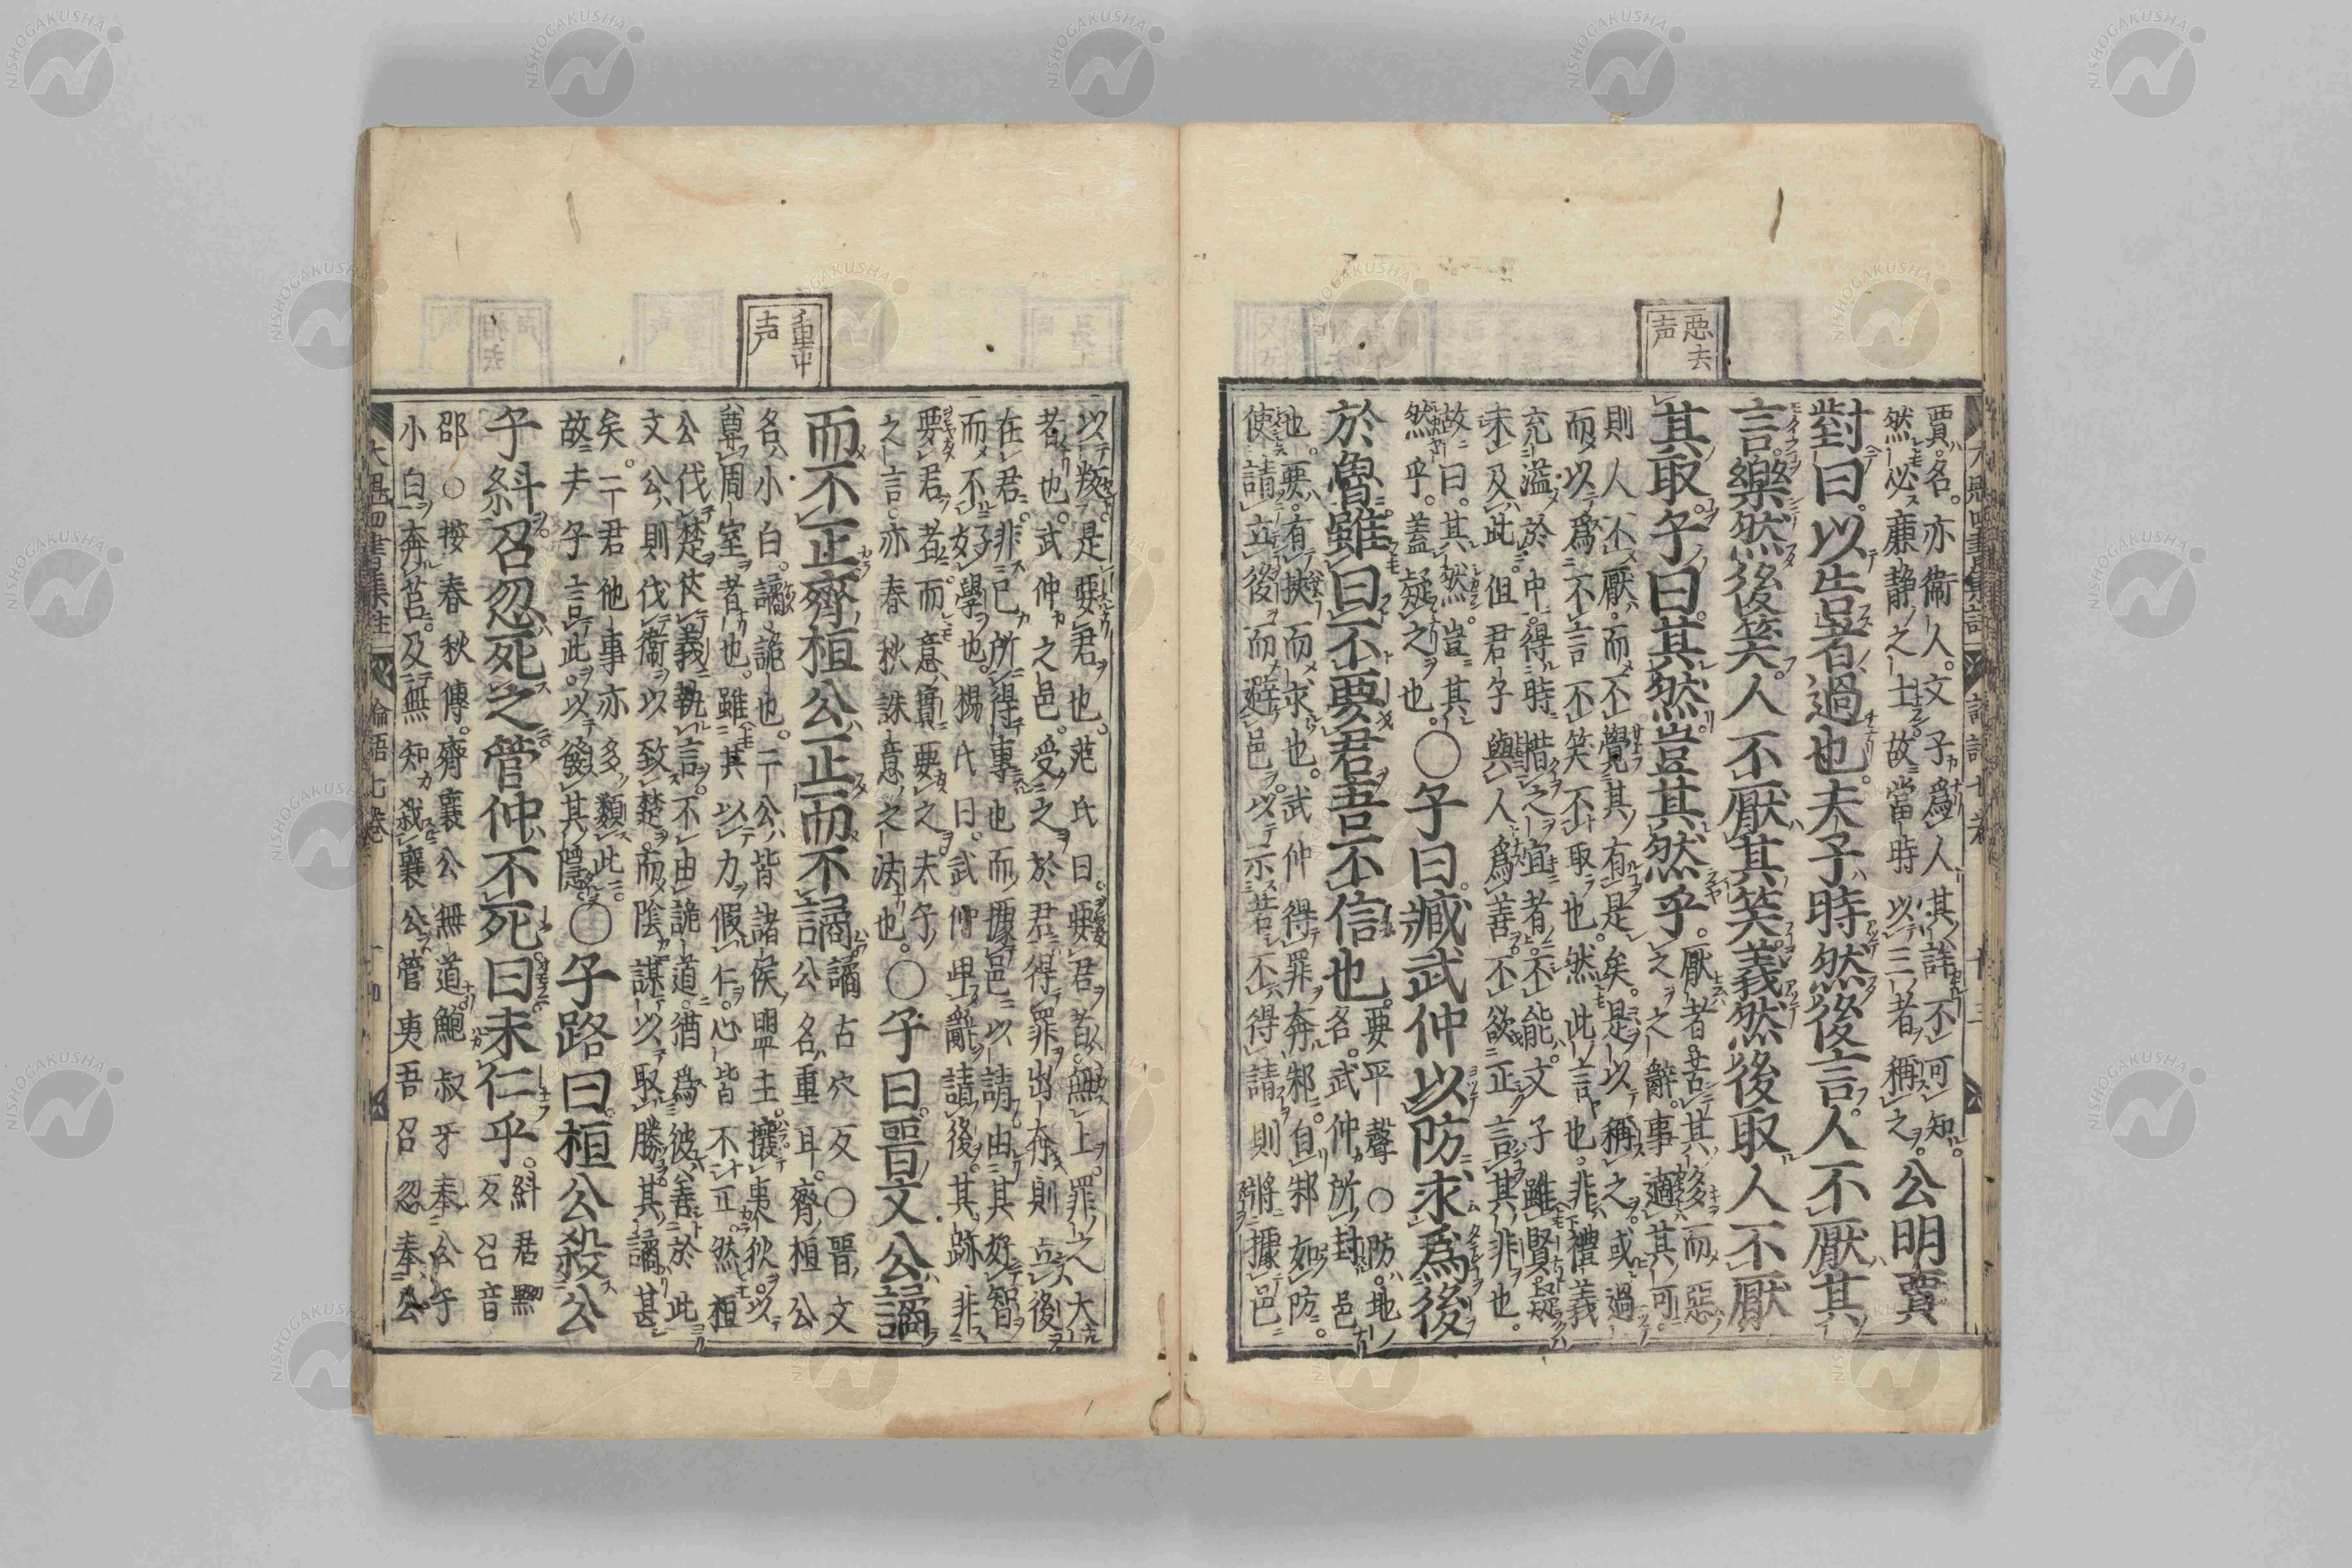 惡去
声
賈。名。亦衞人。文子爲人其詳不可知。
然必廉靜之士。故當時以三者稱之。公明賈
對曰。以告者過也。夫子時然後言。人不厭其
言。樂然後笑。人不厭其笑。義然後取。人不厭
其取。子曰。其然。豈其然乎。厭者。苦其多而惡
之之辭。事適其可。
則人不厭。而不覺其有是矣。是以稱之。或過
而以爲不言不笑不取也。然此言也。非禮義
充溢於中。得時措之宜者不能。文子雖賢。疑
未及此。但君子與人爲善。不欲正言其非也。
故曰。其然。豈其
然乎。蓋疑之也。○子曰。臧武仲以防求爲後
於魯雖曰不要君吾不信也。要平聲○防。地
名。武仲所封邑
也。要。有挾而求也。武仲得罪奔邾。自邾如防。
使請立後而避邑。以示若不得請。則將據邑
重平
声
以叛。是要君也。范氏曰。要君者無上。罪之大
者也。武仲之邑。受之於君。得罪出奔則立後
在君。非己所得專也而據邑以請由其好智
而不好學也。楊氏曰。武仲卑辭請後。其跡非
要君者。而意實要之。夫子
之言。亦春秋誅意之法也。○子曰。晋文公譎
而不正齊桓公正而不譎譎古穴反○晋文
公名重耳。齊桓公
名小白。譎詭也。二公皆諸侯盟主。攘夷狄。以
尊周室者也。雖其以力假仁。心皆不正。然桓
公伐楚仗義執言。不由詭道。猶爲彼善於此
文公則伐衞以致楚。而陰謀以取勝其譎甚
矣。二君他事亦多類此。
故夫子言此。以發其隱○子路曰。桓公殺公
子糾。召忽死之。管仲不死。曰。未仁乎。糾君黝
反召音
邵○按春秋傳。齊襄公無道鮑叔牙奉公子
小白奔莒。及無知殺襄公管夷吾召忽奉公
大魁四書集註 論語七卷